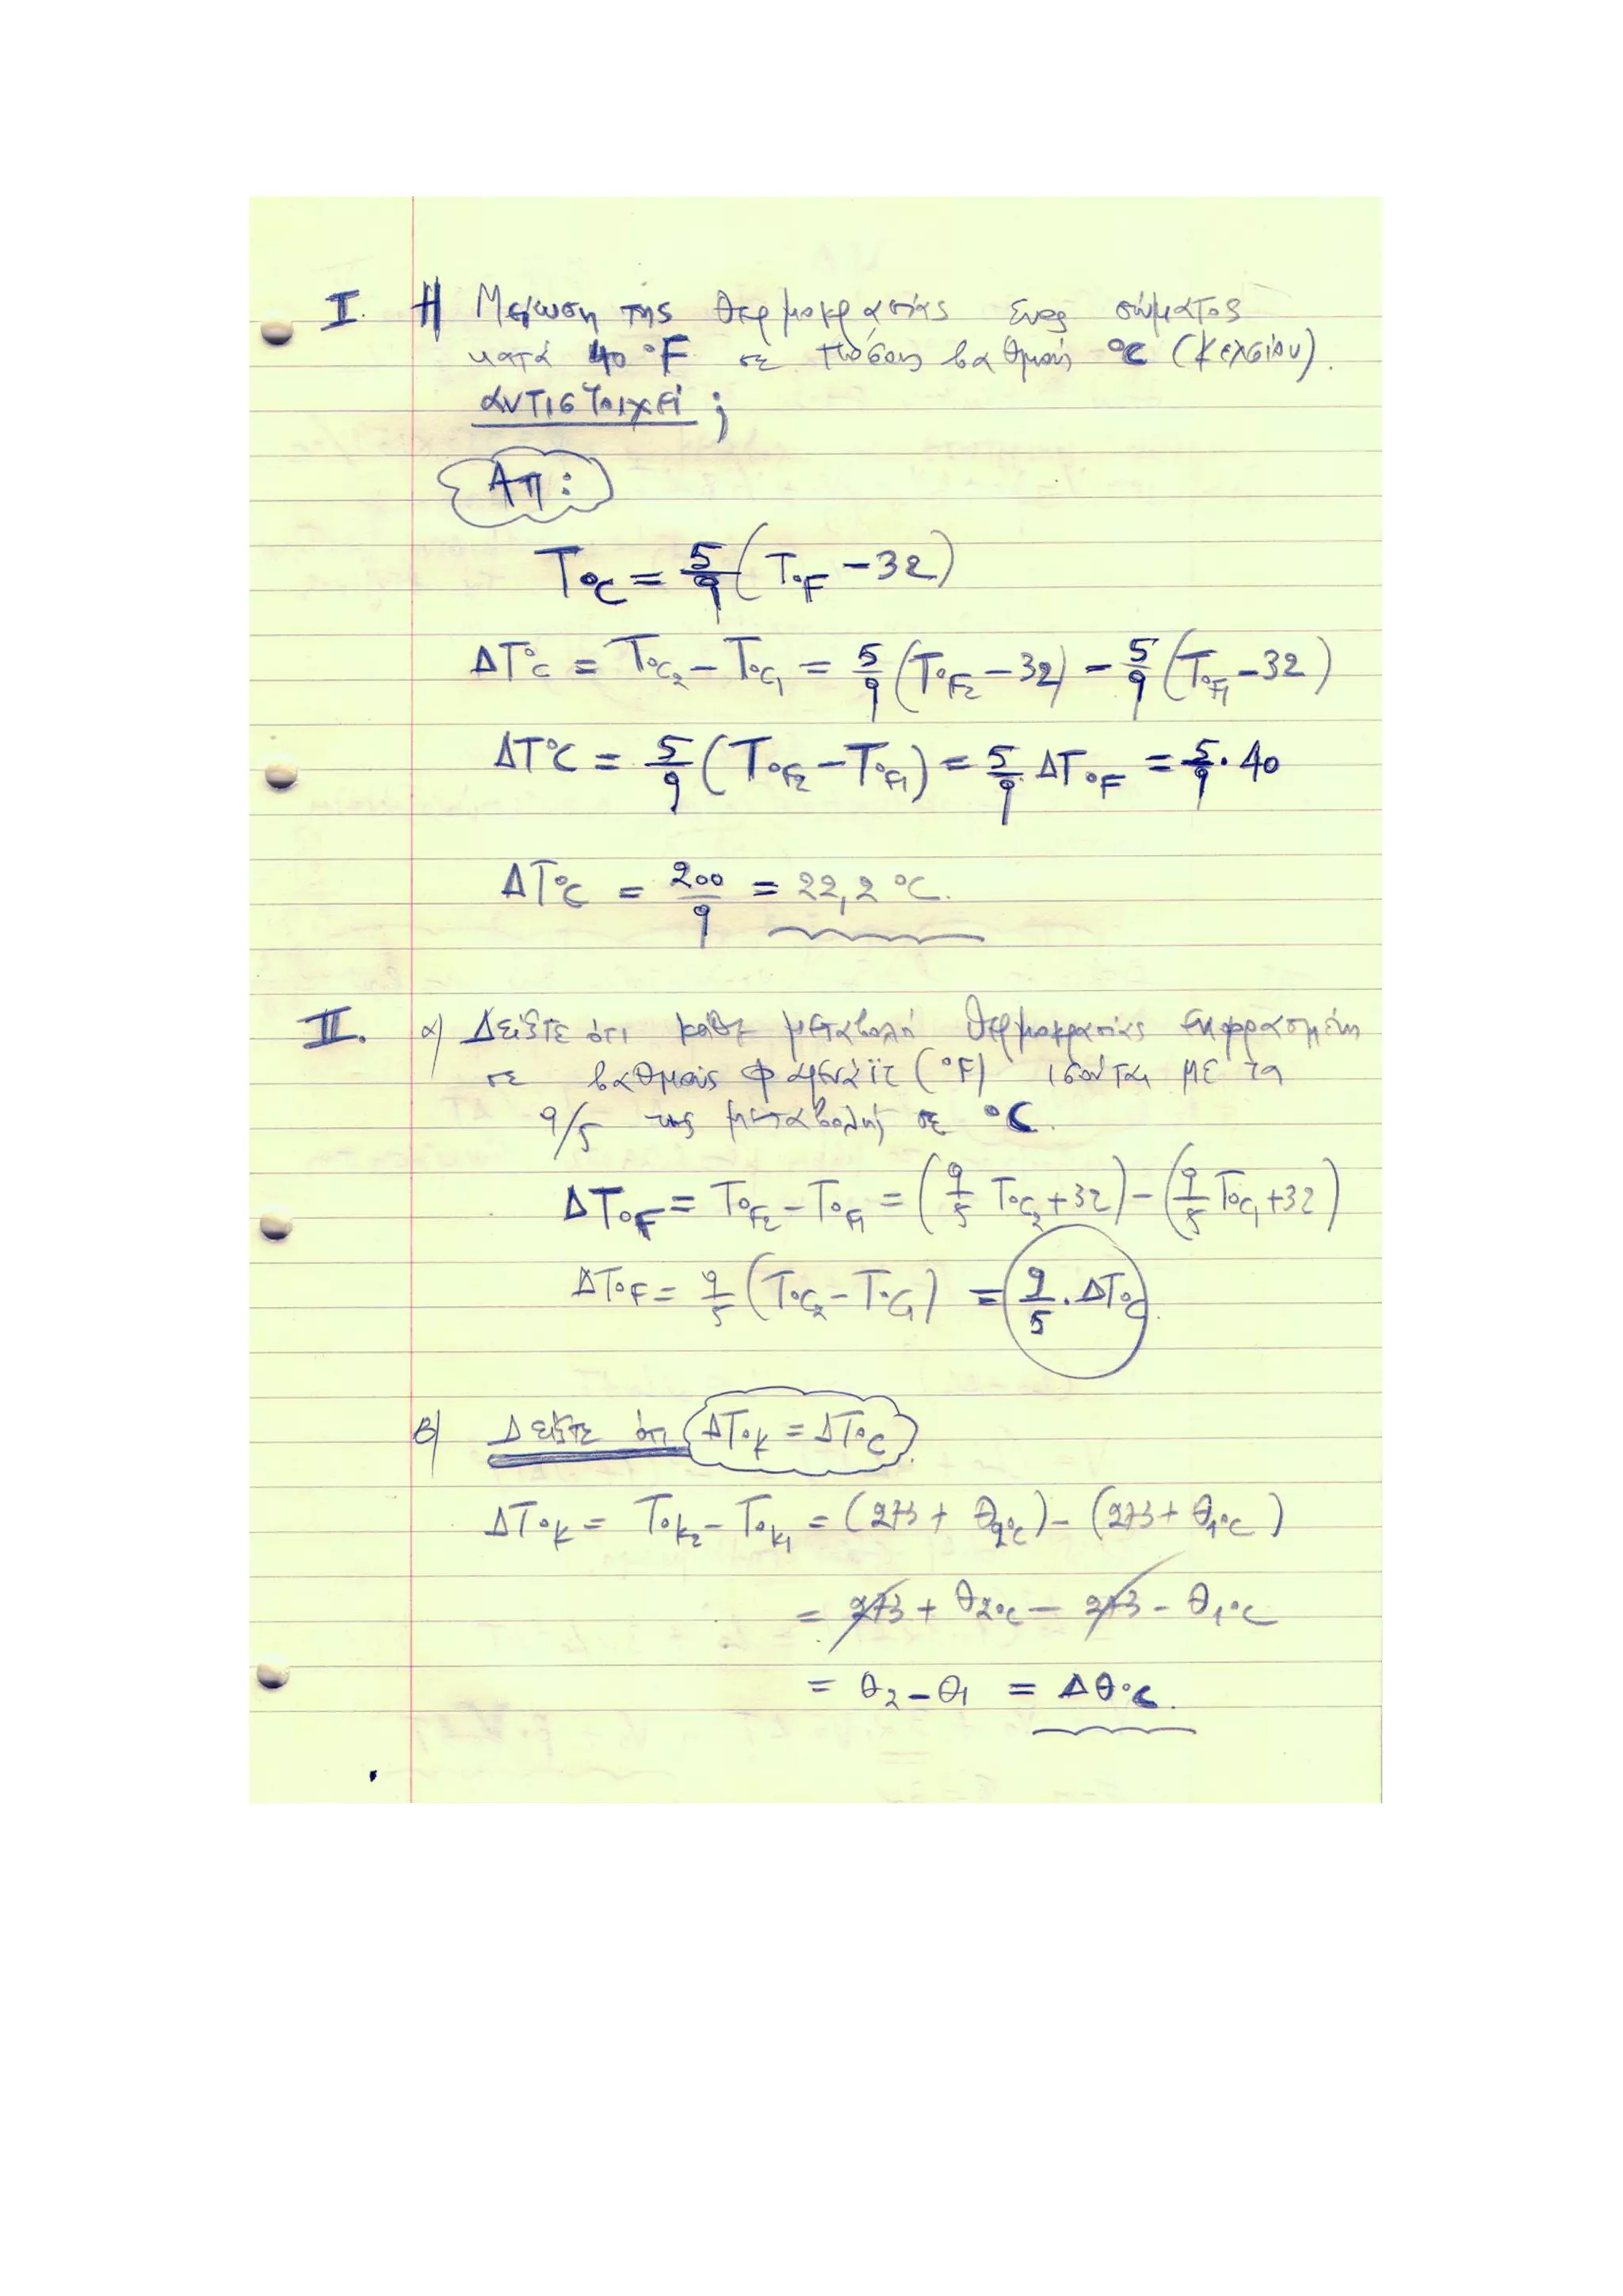 I. Η Μείωση της θερμοκρασίας ενός σώματος
κατά 40 °F σε πόσους βαθμούς °C (Κελσίου).
αντιστοιχεί ;
Απ:
T°C = 5/9 (T°F - 32)
ΔT°C = T°C₂ - T°C₁ = 5/9 (T°F₂ - 32) - 5/9 (T°F₁ - 32)
ΔT°C = 5/9 (T°F₂ - T°F₁) = 5/9 ΔT°F = 5/9 · 40
ΔT°C = 200/9 = 22,2 °C.
II. α) Δείξτε ότι κάθε μεταβολή θερμοκρασίας εκφρασμένη
σε βαθμούς Φαρενάϊτ (°F) ισούται με τα
9/5 της μεταβολής σε °C.
ΔT°F = T°F₂ - T°F₁ = (9/5 T°C₂ + 32) - (9/5 T°C₁ + 32)
ΔT°F = 9/5 (T°C₂ - T°C₁) = 9/5 · ΔT°C
β) Δείξτε ότι ΔT°K = ΔT°C.
ΔT°K = T°K₂ - T°K₁ = (273 + θ₂°C) - (273 + θ₁°C)
= 273 + θ₂°C - 273 - θ₁°C
= θ₂ - θ₁ = Δθ°C.